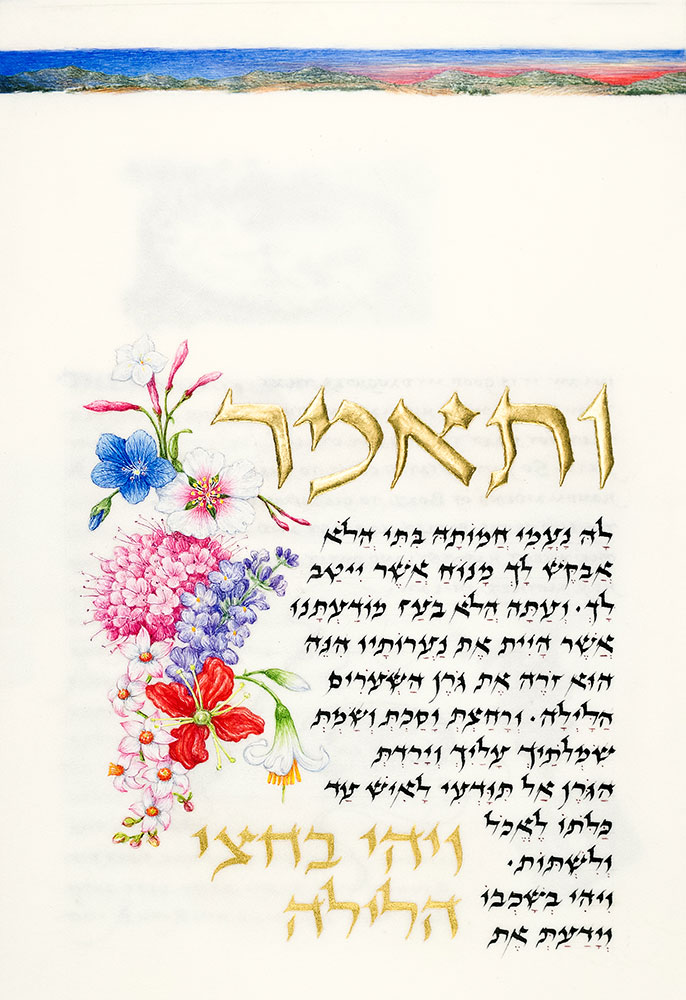 ותאמר
לָהּ נָעֳמִי חֲמוֹתָהּ בִּתִּי הֲלֹא
אֲבַקֶּשׁ לָךְ מָנוֹחַ אֲשֶׁר יִיטַב
לָךְ· וְעַתָּה הֲלֹא בֹעַז מוֹדַעְתָּנוּ
אֲשֶׁר הָיִית אֶת נַעֲרוֹתָיו הִנֵּה
הוּא זֹרֶה אֶת גֹּרֶן הַשְּׂעֹרִים
הַלָּיְלָה· וְרָחַצְתְּ וָסַכְתְּ וְשַׂמְתְּ
שִׂמְלֹתַיִךְ עָלַיִךְ וְיָרַדְתְּ
הַגֹּרֶן אַל תִּוָּדְעִי לָאִישׁ עַד
כַּלֹּתוֹ לֶאֱכֹל
וְלִשְׁתּוֹת·
וִיהִי בְשָׁכְבוֹ
וְיָדַעַתְּ אֶת
ויהי בחצי
הלילה